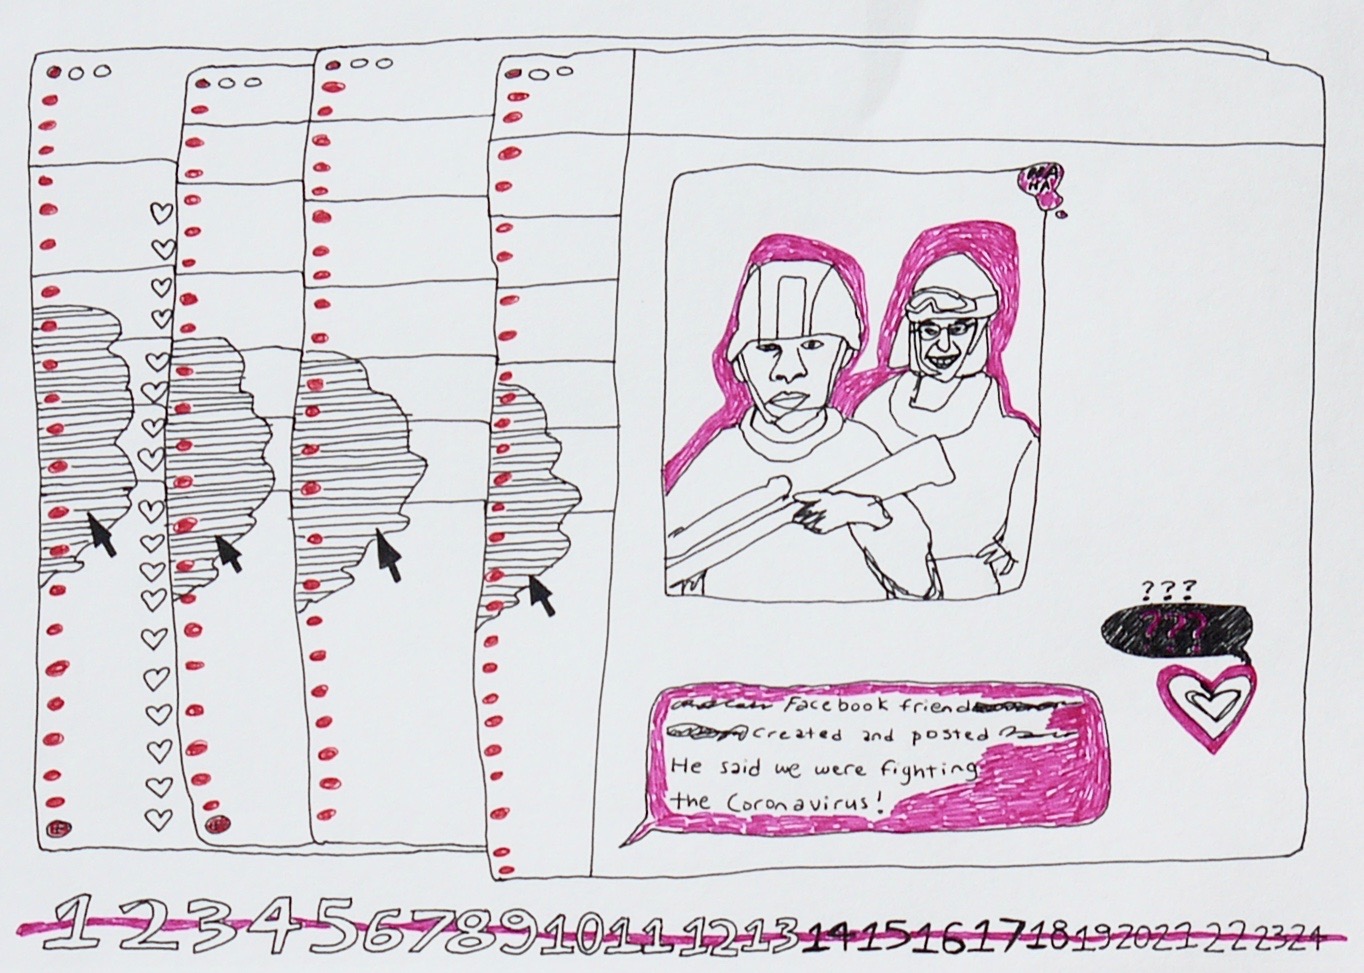 HA
HA
???
???
Facebook friend
Created and posted
He said we were fighting
the Coronavirus!
1 2 3 4 5 6 7 8 9 10 11 12 13 14 15 16 17 18 19 20 21 22 23 24